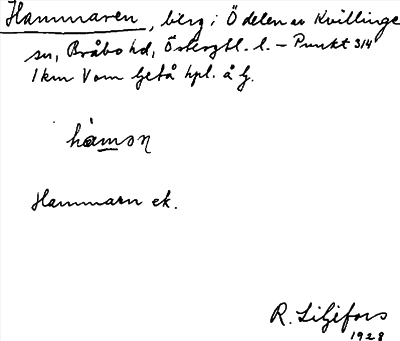 Hammaren, berg i Ö delen av Kvillinge
sn, Bråbo hd, Östergtl. l. – Punkt 314
1 km V om Getå hpl. å G.
hamɔn
Hammarn ek.
R. Liljefors
1928